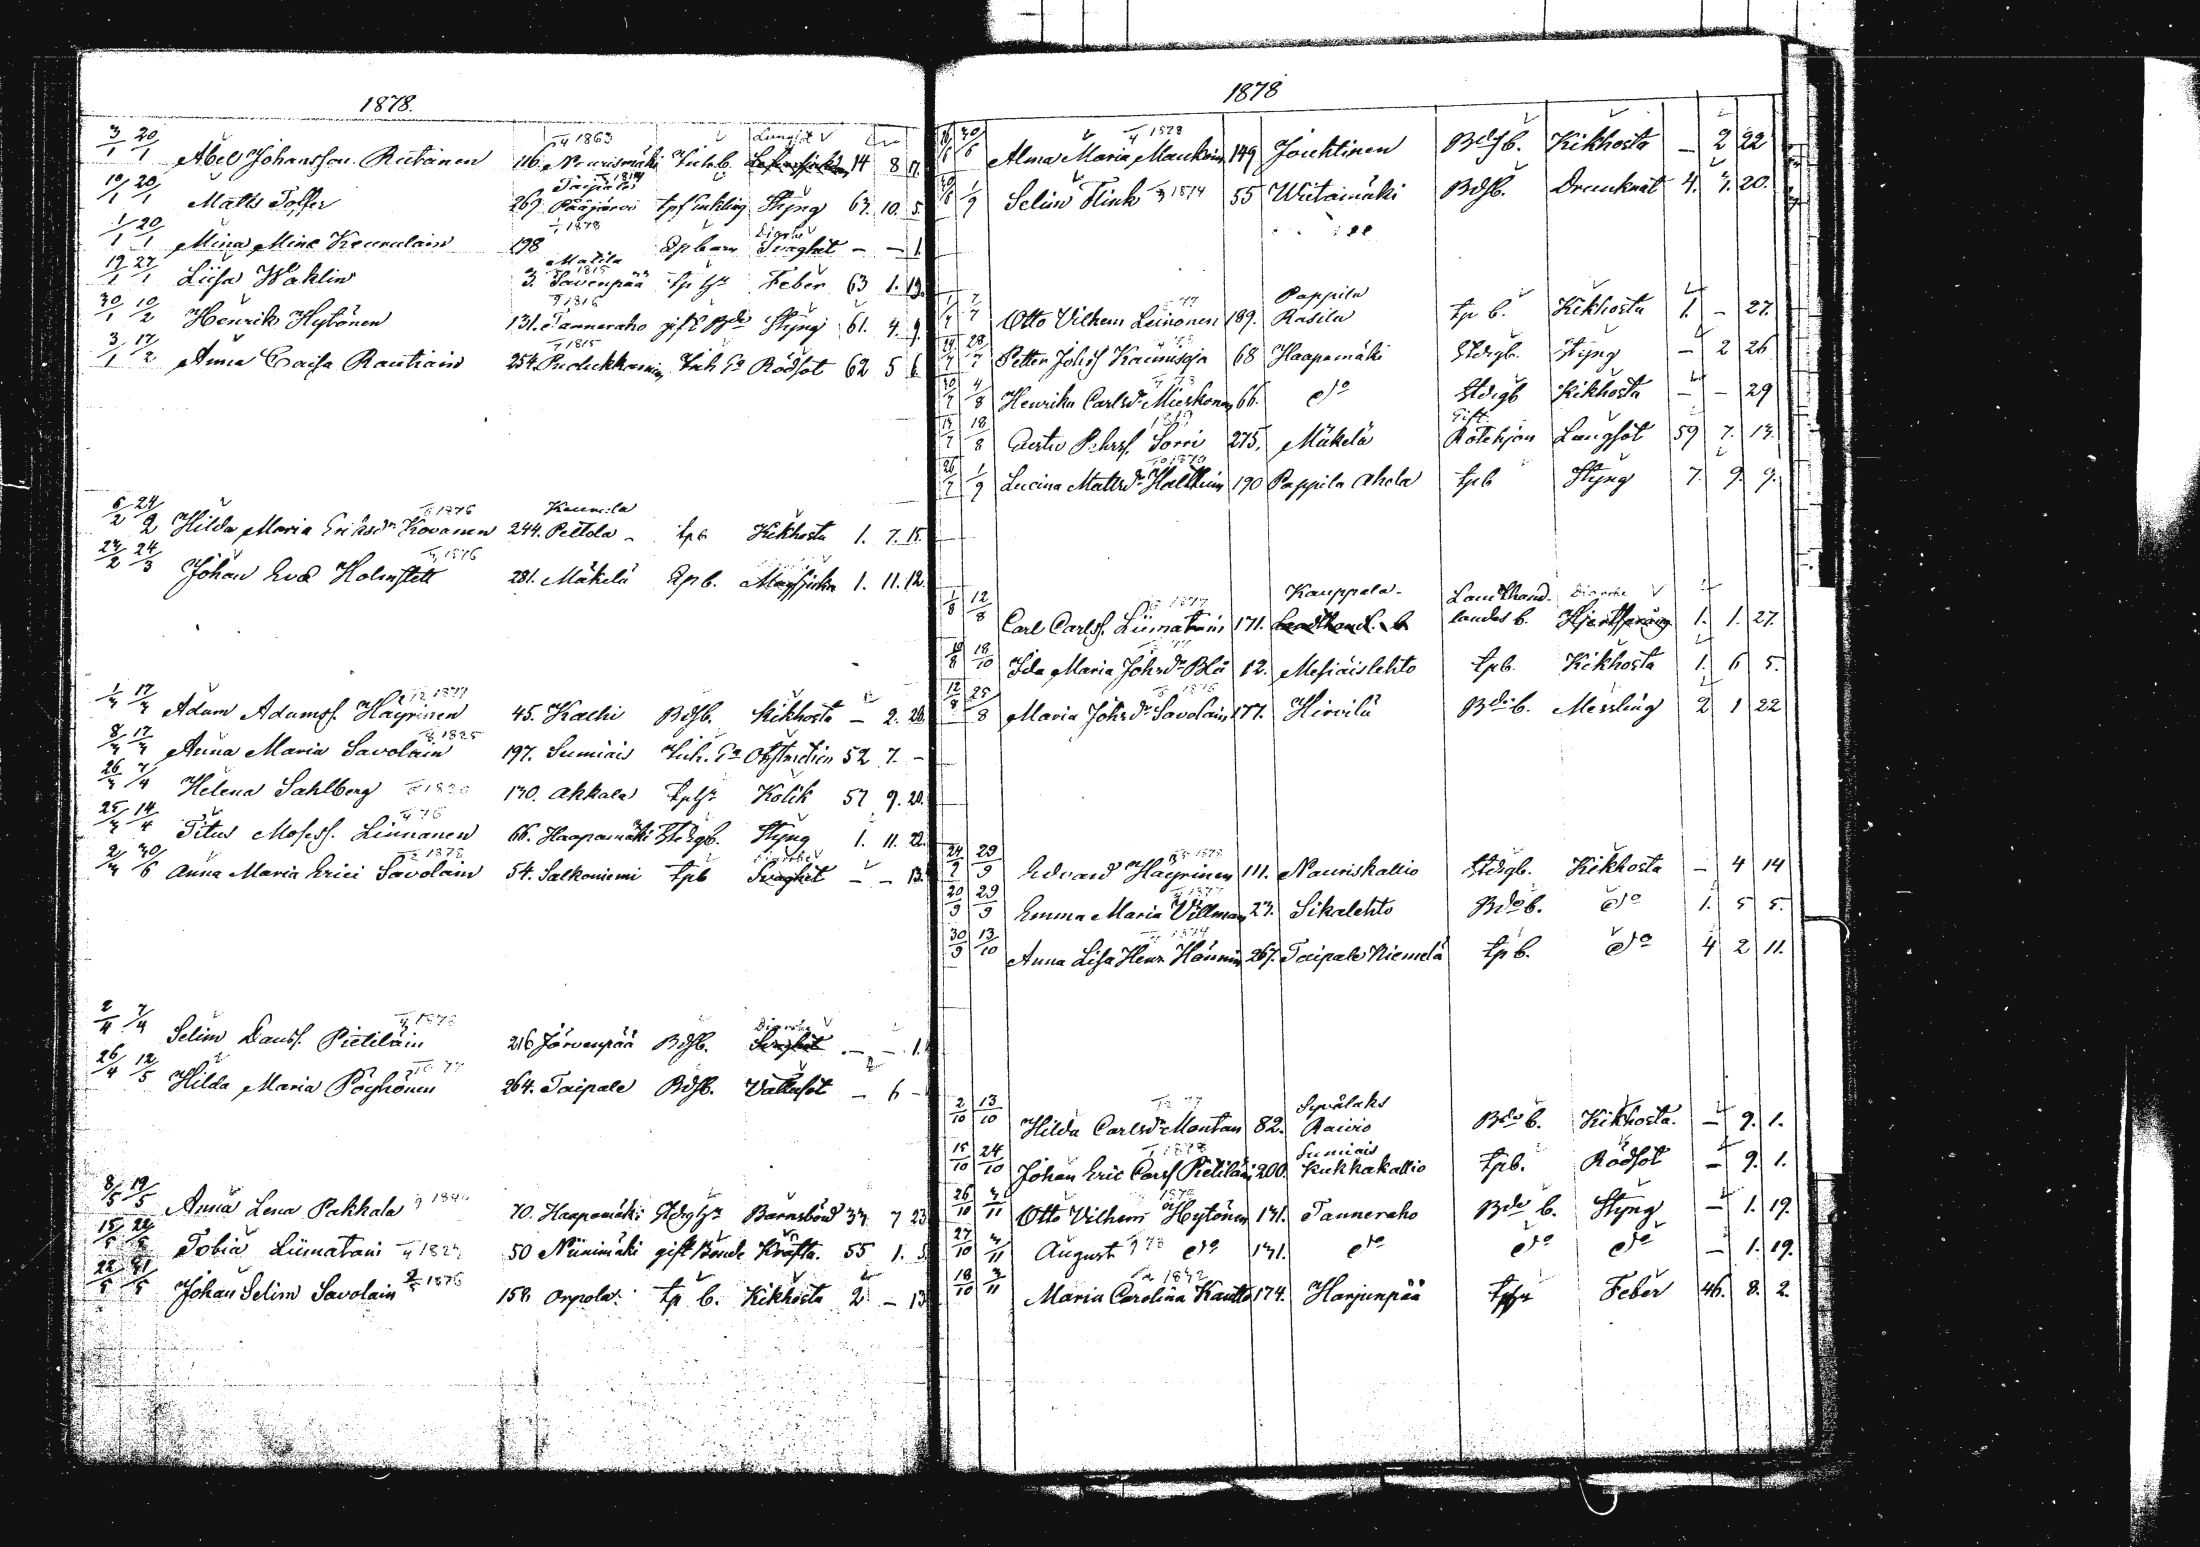 1878.
3/1 20/1 Abel Johansson Rutanen 116. Nourismäki Inh.b. 14 8 17.
1863 Lungsot
10/1 20/1 Matts Tolffer 269 Taipale Pääjärvi Styng 63. 10. 5.
1/1 20/1 Mina Mine Keurulain 198 1878 Diarrhe Svaghet – – 1
19/1 27/1 Liisa Waklin 3. Matila Savenpää 1815 Feber 63 1. 19.
30/1 10/2 Henrik Hytönen 131. Tanneraho 1816 gift Bde Styng 61. 4. 9.
3/1 17/2 Anna Caisa Rautiain 254. 1815 Rödsot 62 5 6
6/2 24/2 Hilda Maria Eriksdr Kovanen 1876 244. Peltola tpb Kikhosta 1. 7. 15.
27/2 24/3 Johan Evd Holmstett 1876 281. Mäkelä tpb. Magsjuka 1. 11. 12.
1/3 17/3 Adam Adamss. Häyrinen 1877 45. Kachi Bdsb. Kikhosta – 2. 26.
8/3 17/3 Anna Maria Savolain 1825 197. Sumiais Inh. Ea Obstruction 52 7. –
26/3 7/4 Helena Sahlberg 1820 130. Akkala Kolik 57 9. 20.
25/3 14/4 Titus Mosess. Linnanen 76 66. Haapamäki Stdrgb. Styng 1. 11. 22.
2/3 30/6 Anna Maria Erici Savolain 1878 54. Salkoniemi tpb Svaghet – – 13.
2/4 7/4 Selim Danss. Pietiläin 1878 216 Järvenpää Bdsb. Diarrhe Svaghet – – 1.
26/4 12/5 Hilda Maria Pöyhönen 77 264. Taipale Bdsb. Vattusot – 6 –
8/5 19/5 Anna Lena Pakkala 1844 70. Haapamäki Barnsbörd 33 7 23
15/5 22/5 Tobia Liimatain 1823 50 Niinimäki gift Bonde Kräfta. 55 1. 5.
22/5 31/5 Johan Selim Savolain 1876 158 Orpola. tp b. Kikhosta 2 – 13
1878
30/6 Alma Maria Manknin 1878 149 Jouhtinen Bdsb. Kikhosta – 2 22
1/9 Selim Flink 1874 55 Wiitamäki Bdsb. Drunknat 4. 3. 20.
1/7 7/7 Otto Vilhem Leinonen 77 189. Pappila Rasila tp b. Kikhosta 1. – 27.
28/7 Petter Johss Kaunisoja 68 Haapamäki Stdrgb. Styng – 2 26
4/8 Henrika Carlsdr Mieskonen 66. do Stdrgb Kikhosta – – 29
18/8 Gerta Pehrss. Sorri 1819 275. Mäkelä Gift Rotehjon Lungsot 59 7. 13.
26/7 1/9 Lucina Mattsdr Halttuin 1870 190 Pappila Ahola tpb Styng 7. 9. 9.
1/8 12/8 Carl Carlss. Liimatain 1877 171. Kauppala Landthandlandes b. Diarrhe 1. 1. 27.
18/10 Ida Maria Johsdr Blå 12. Mesiäislehto tpb. Kikhosta 1. 6 5.
12/8 25/8 Maria Johsdr Savolain 1876 177. Hirvilä Bde b. Messling 2 1 22
24/9 29/9 Edvard Häyrinen 1878 111. Nauriskallio Stdrgb. Kikhosta – 4 14
20/9 29/9 Emma Maria Villman 1877 23. Sikalehto Bde b. do 1. 5 5.
30/9 13/10 Anna Lisa Henr. Hännin 1874 267. Taipale Niemelä tpb. do 4 2 11.
2/10 13/10 Hilda Carlsdr Montan 77 82. Syvälaks Raivio Bde b. Kikhosta. – 9. 1.
15/10 24/10 Johan Eric Carss Pietiläin 1878 200. Sumiais Kukkakallio tpb. Rödsot – 9. 1.
26/10 3/11 Otto Vilhem Hytönen 1878 131. Tanneraho Bde b. Styng – 1. 19.
27/10 3/11 August 78 do 131. do do do – 1. 19.
18/10 3/11 Maria Carolina Kautto 1832 174. Harjunpää Feber 46. 8. 2.